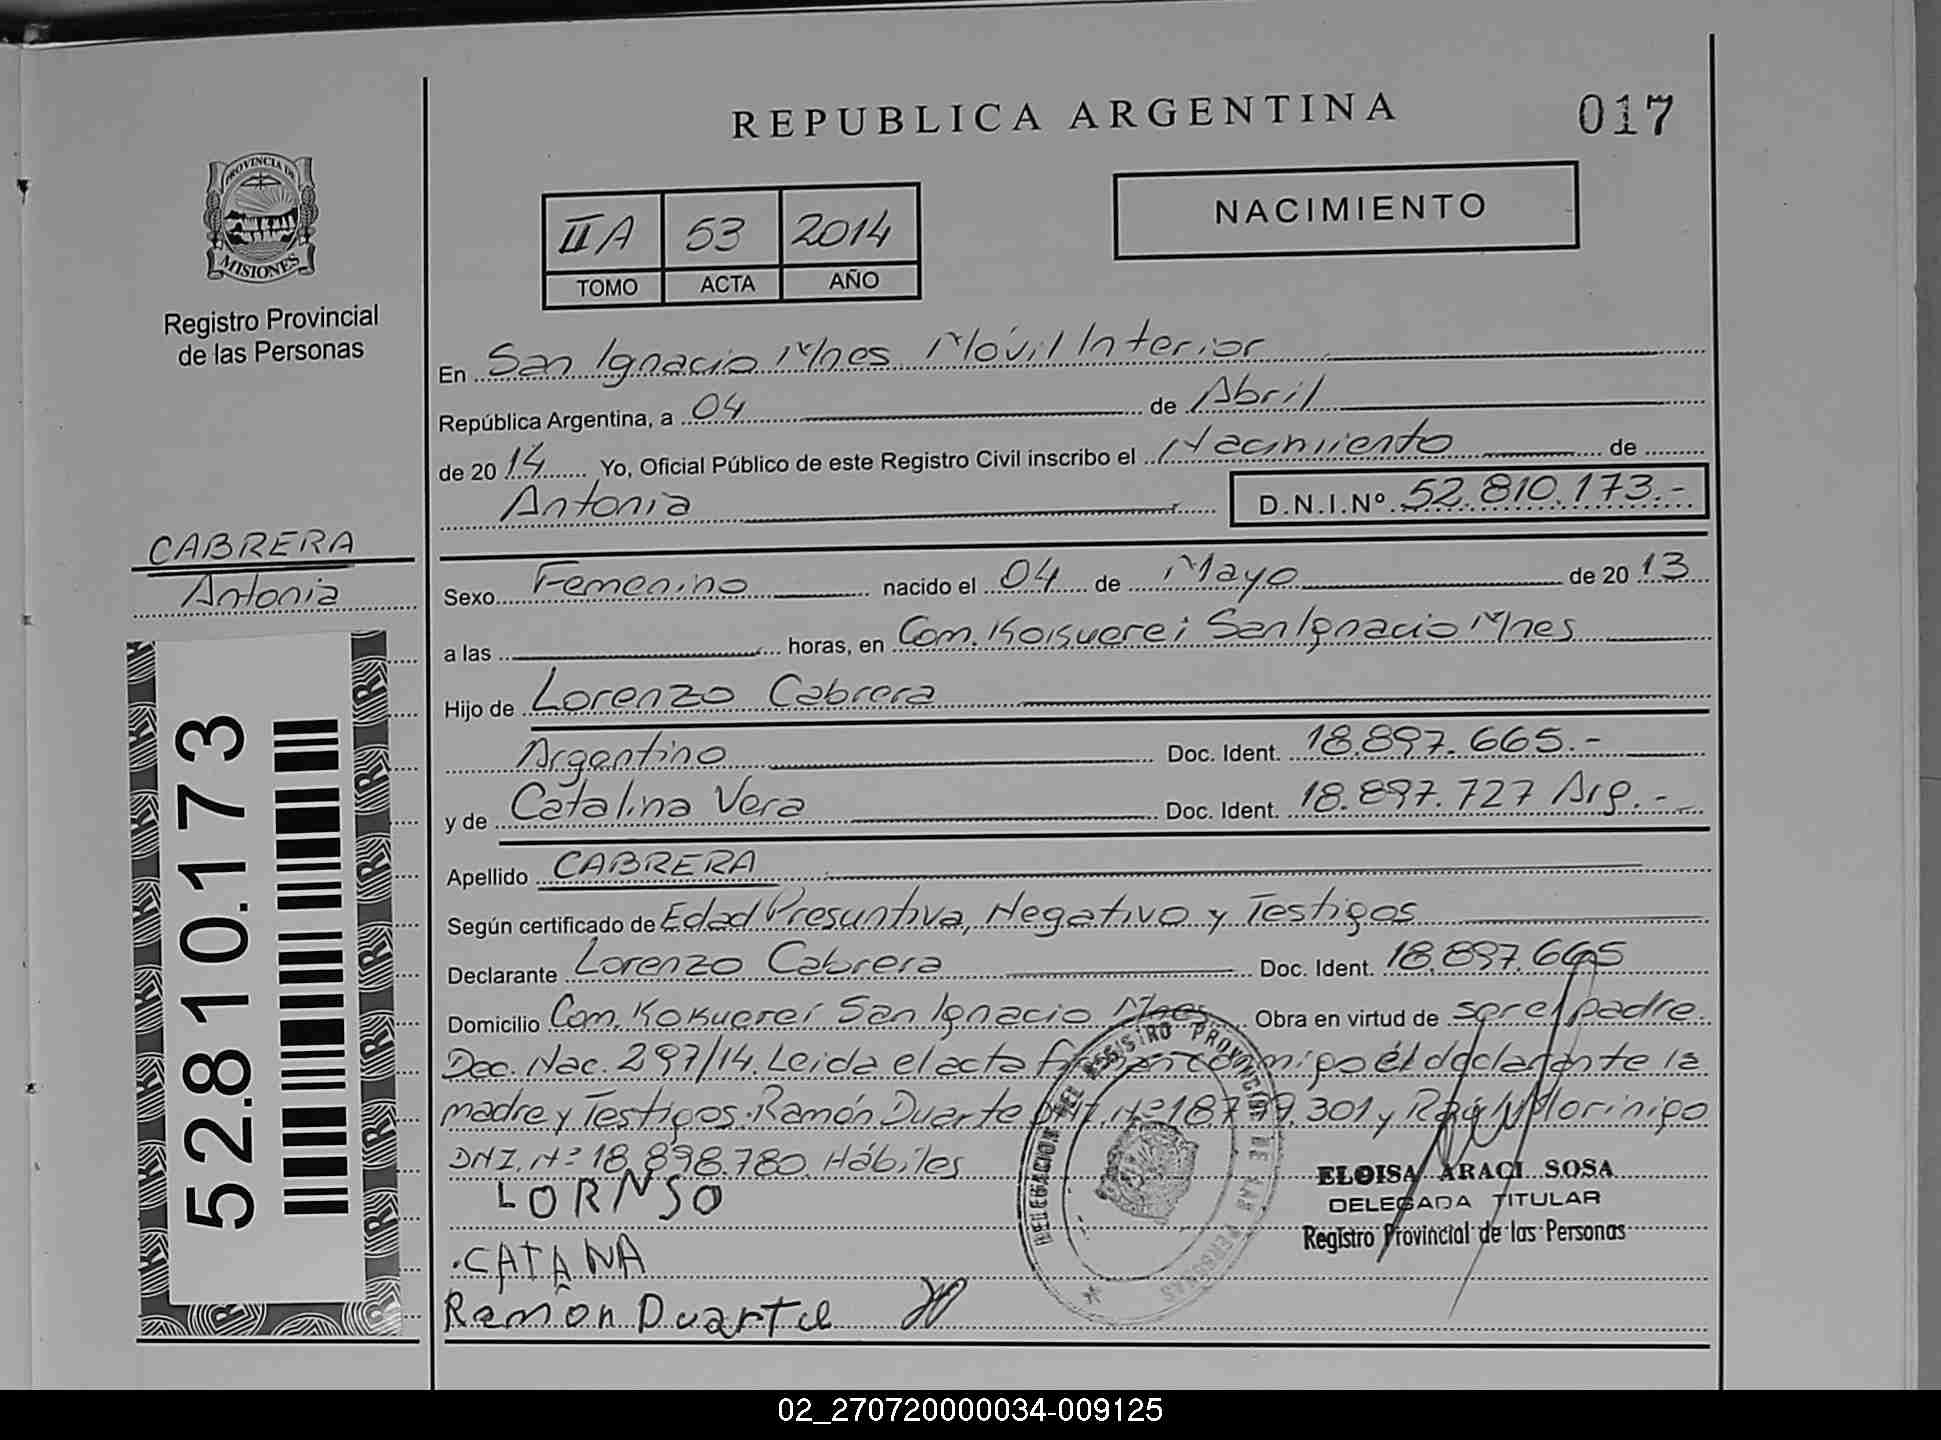 REPUBLICA ARGENTINA
017
PROVINCIA DE
MISIONES
Registro Provincial
de las Personas
IIA 53 2014
TOMO ACTA AÑO
NACIMIENTO
En San Ignacio Mnes Móvil Interior
República Argentina, a 04 de Abril
de 2014 Yo, Oficial Público de este Registro Civil inscribo el Nacimiento de
Antonia D.N.I.Nº 52.810.173.-
CABRERA
Antonia
52.810.173
Sexo Femenino nacido el 04 de Mayo de 2013
a las horas, en Com. Kokuerei San Ignacio Mnes
Hijo de Lorenzo Cabrera
Argentino Doc. Ident. 18.897.665.-
y de Catalina Vera Doc. Ident. 18.897.727 Arg.-
Apellido CABRERA
Según certificado de Edad Presuntiva, Negativo y Testigos
Declarante Lorenzo Cabrera Doc. Ident. 18.897.665
Domicilio Com. Kokuerei San Ignacio Mnes Obra en virtud de ser el padre.
Dec. Nac. 297/14. Leida el acta conmigo él declarante la
madre y Testigos. Ramón Duarte 301 y Raúl Morinigo
DNI. Nº 18.898.780. Hábiles
LORNSO
CATANA
Ramón Duarte
DELEGACION DEL REGISTRO PROVINCIAL DE LAS PERSONAS
ELOISA ARACI SOSA
DELEGADA TITULAR
Registro Provincial de las Personas
02_270720000034-009125